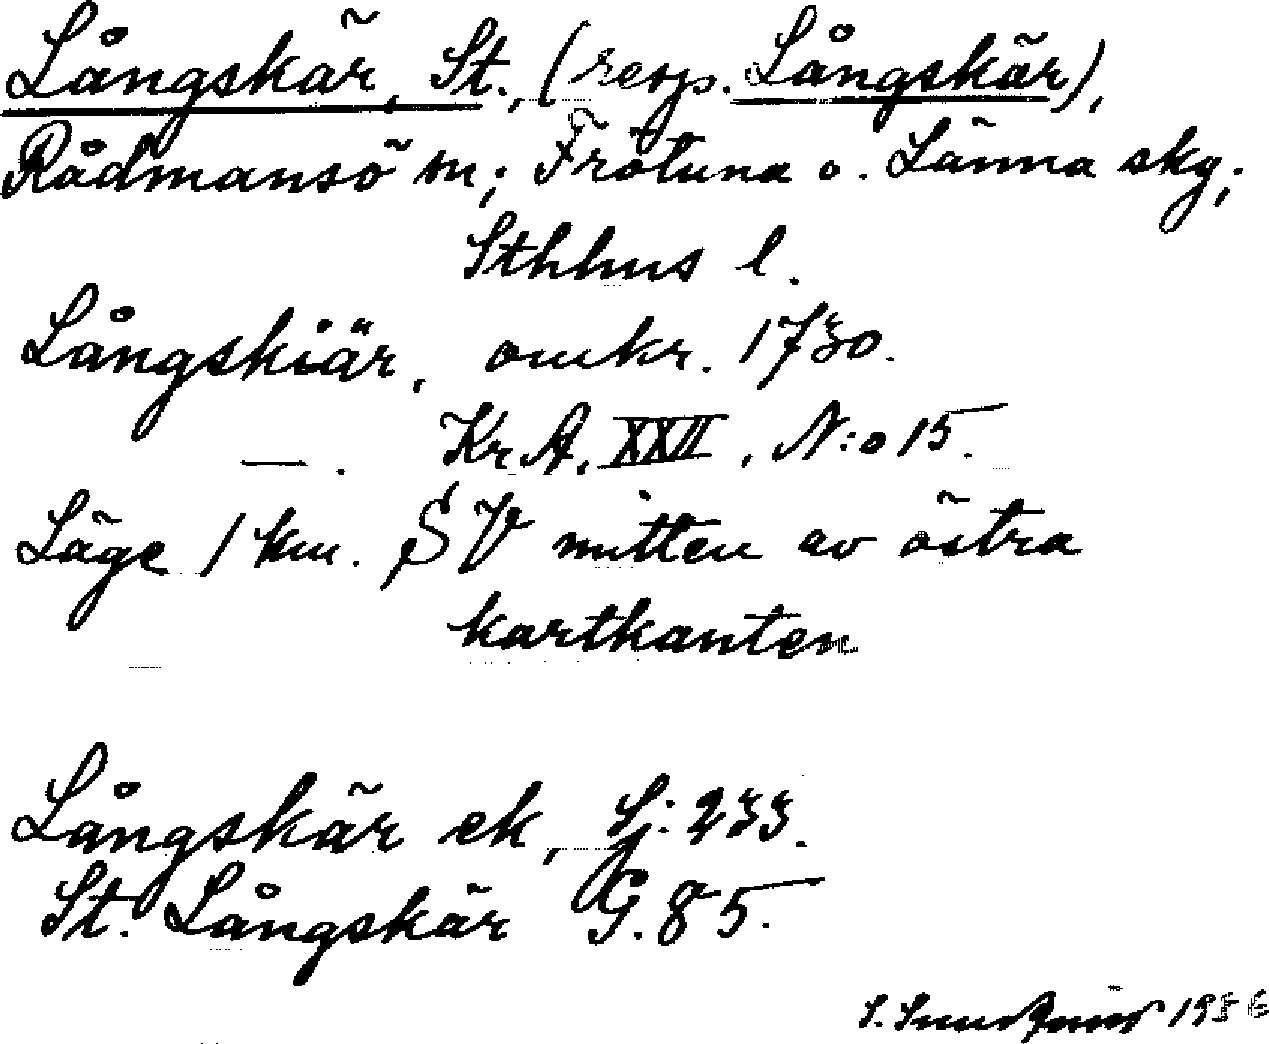 Långskär, St., (resp. Långskär),
Rådmansö sn; Frötuna o. Länna skg;
Sthlms l.
Långskiär, omkr. 1730.
—. Kr. A. XXII, N:o 15.
Läge 1 km. SV mitten av östra
kartkanten
Långskär ek, Sj: 233.
St. Långskär G. 85.
S. 1986